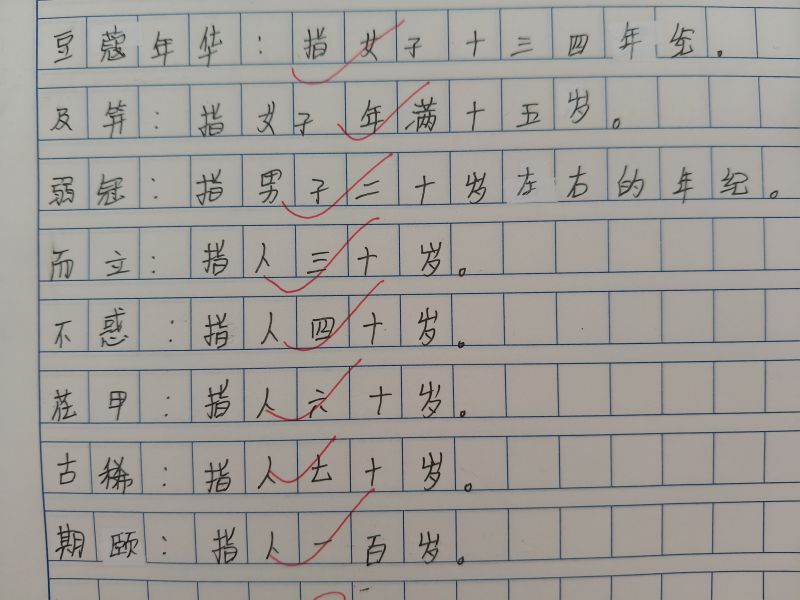 豆蔻年华：指女子十三四年纪。
及笄：指女子年满十五岁。
弱冠：指男子二十岁左右的年纪。
而立：指人三十岁。
不惑：指人四十岁。
花甲：指人六十岁。
古稀：指人七十岁。
期颐：指人一百岁。